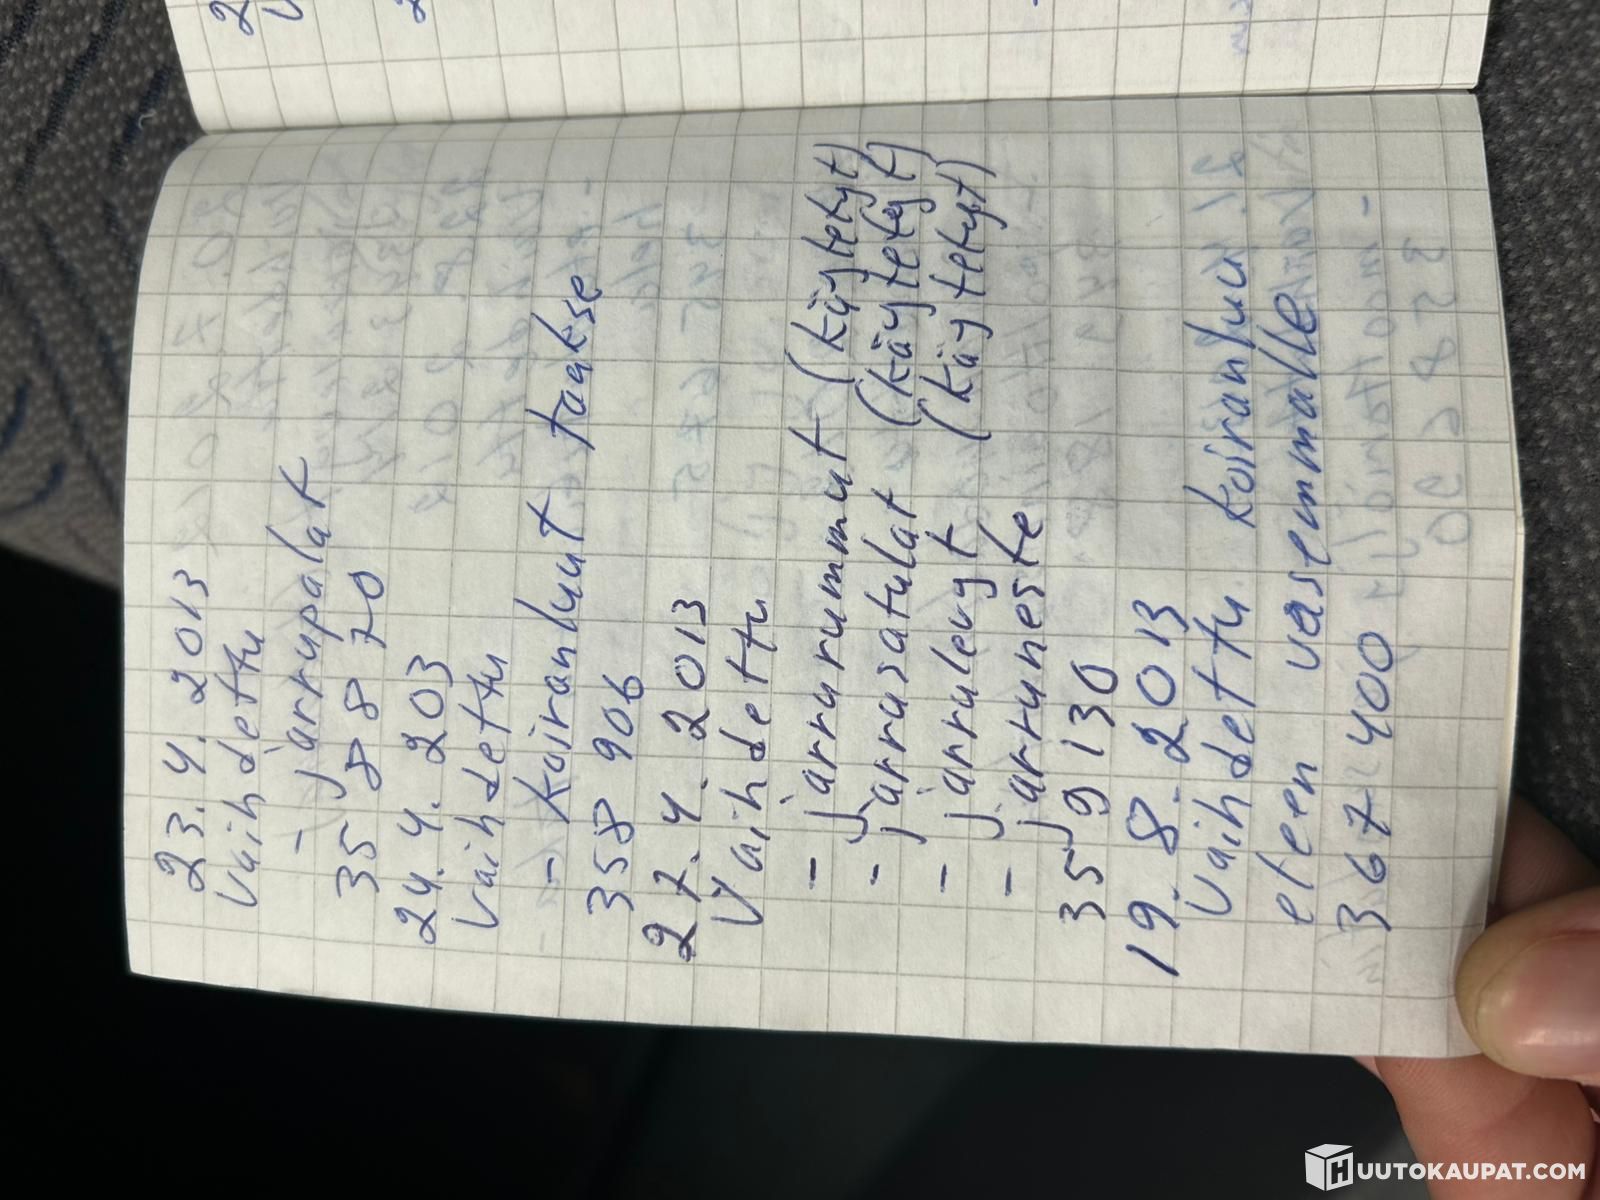 23.4.2013
Vaihdettu
- jarrupalat
358870
24.4.203
Vaihdettu
- koiranluut taakse
358 906
27.4.2013
Vaihdettu
- jarrurummut (käytetyt)
- jarrusatulat (käytetyt)
- jarrulevyt (käytetyt)
- jarruneste
359130
19.8.2013
Vaihdettu koiranluu
eteen vasemmalle
367400
HUUTOKAUPAT.COM